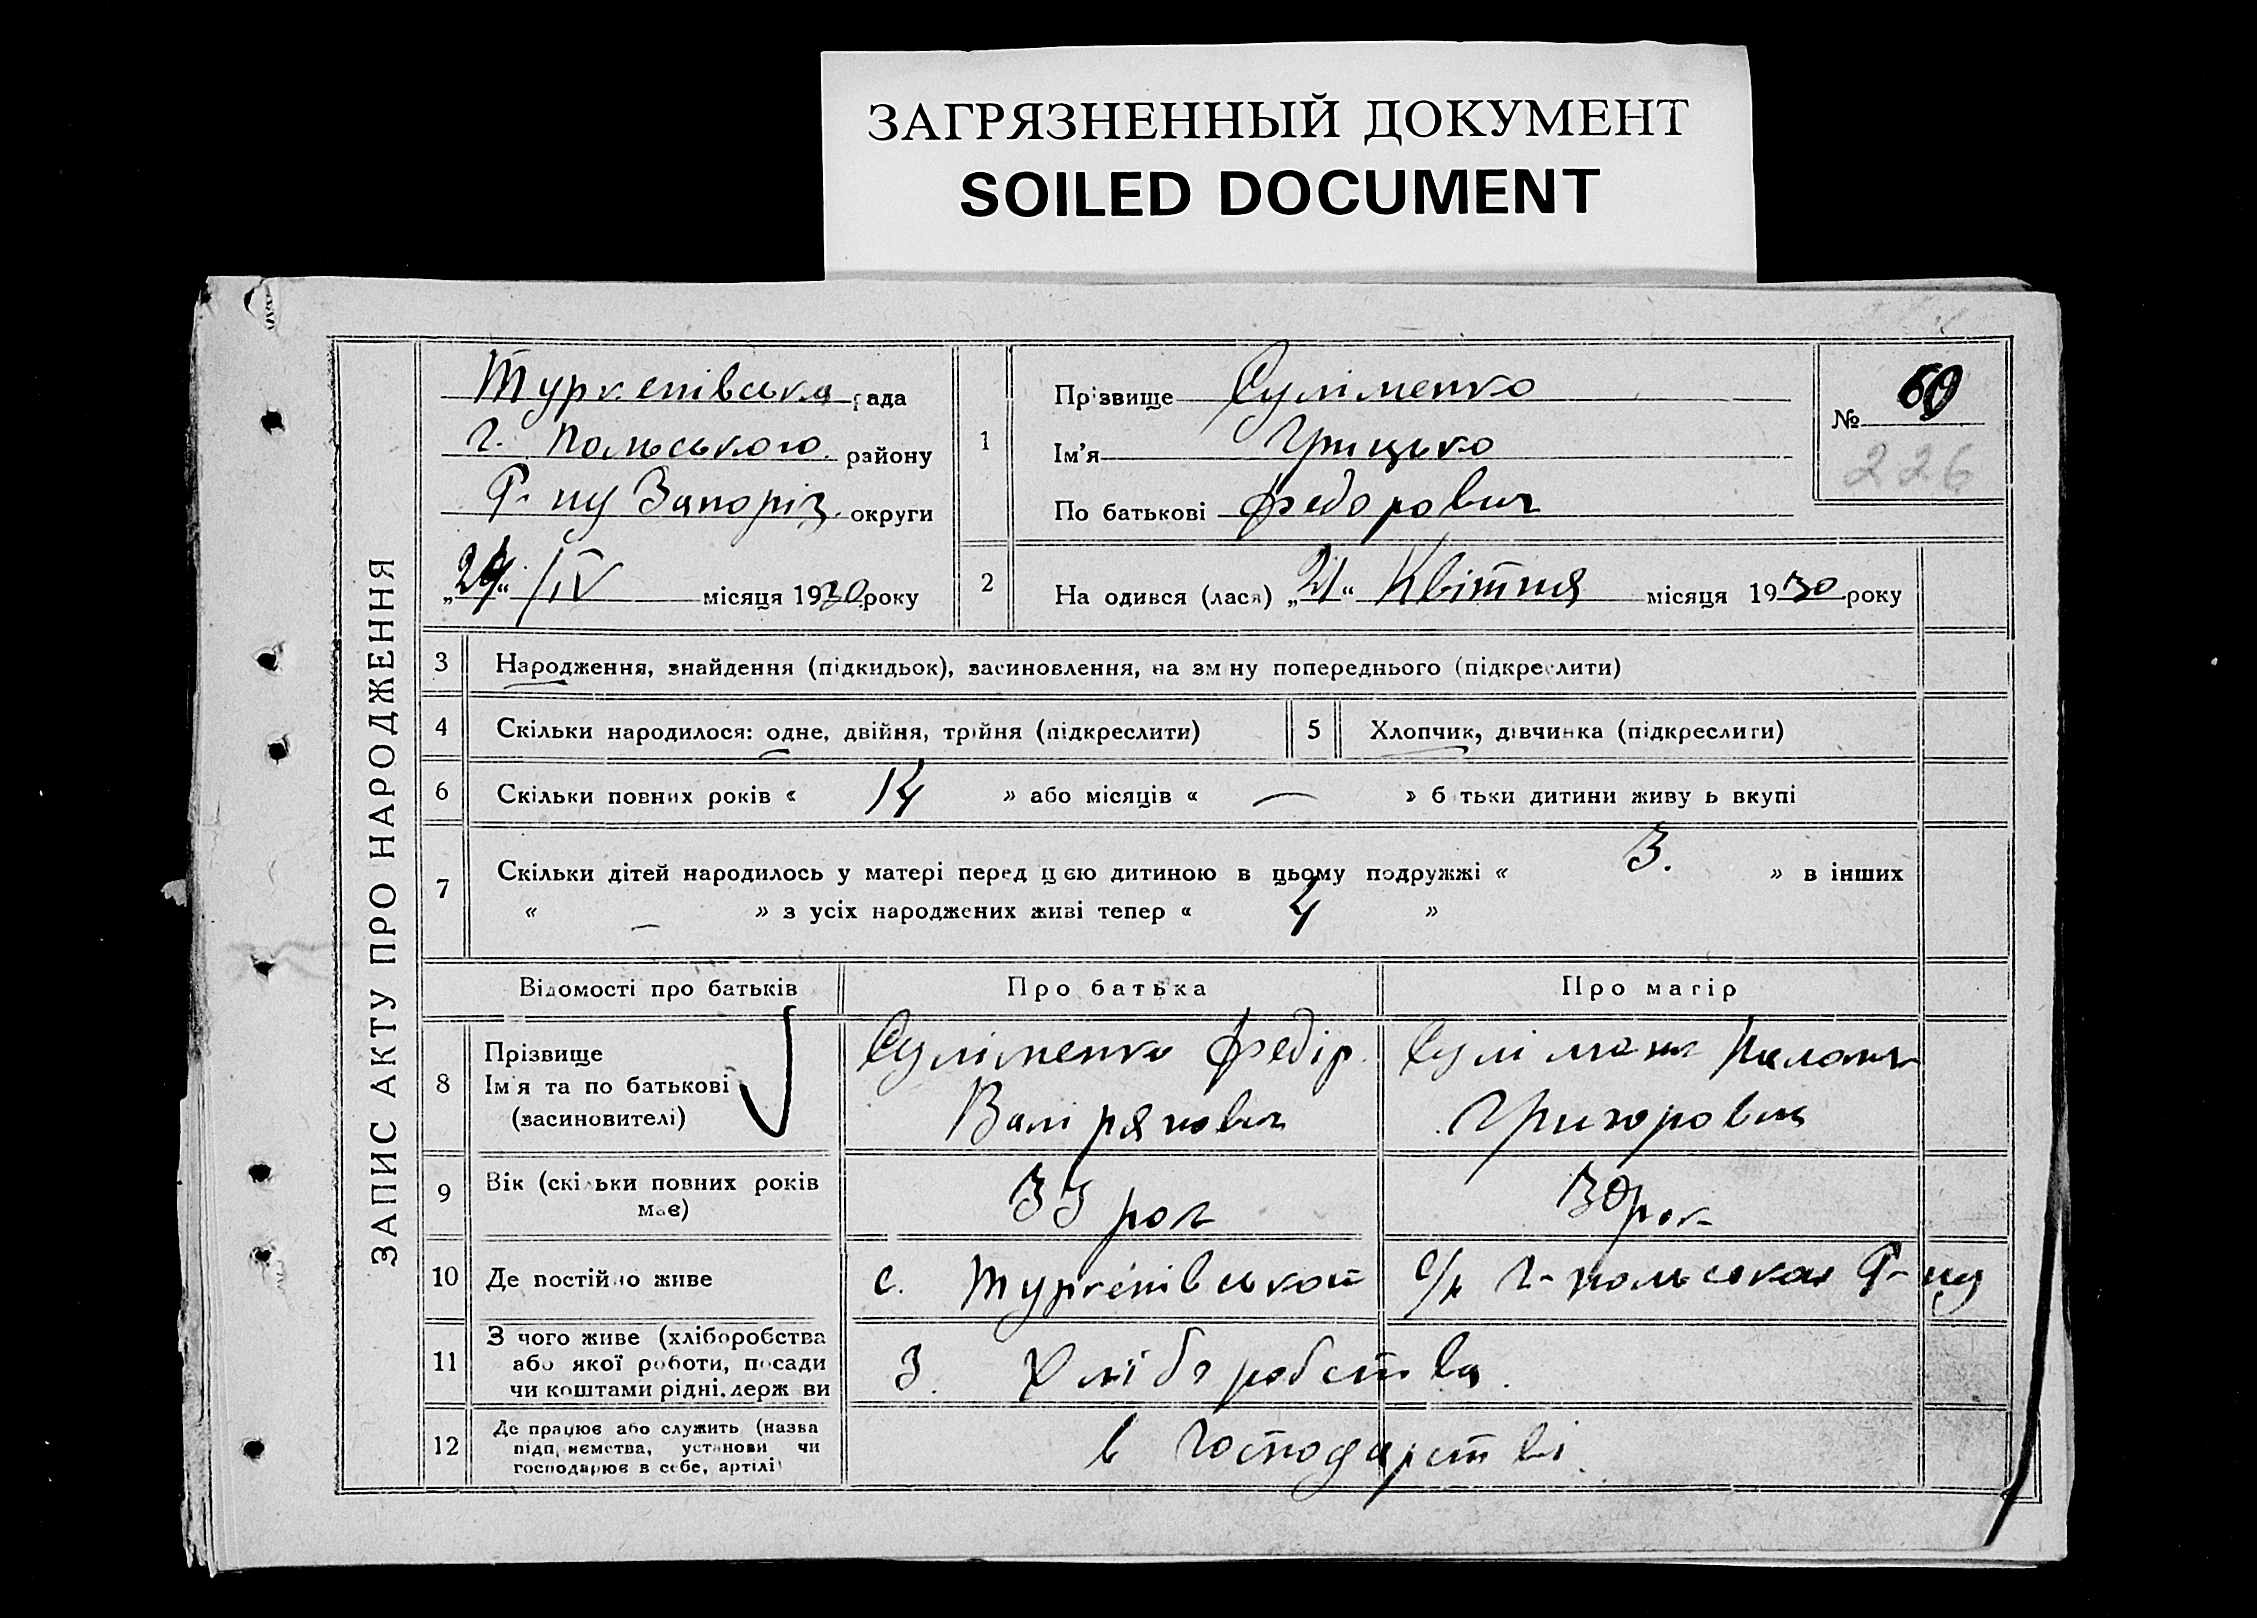 ЗАГРЯЗНЕННЫЙ ДОКУМЕНТ
SOILED DOCUMENT
ЗАПИС АКТУ ПРО НАРОДЖЕННЯ
Туркенівська рада
Г. Польського району
Р-ну Запоріз. округи
/IV місяця 1930 року
1
Прізвище Суліменко
Ім'я Грицько
По батькові Федорович
№ 60
226
2
На одився (лася) „21“ Квітня місяця 1930 року
3 Народження, знайдення (підкидьок), засиновлення, на зм ну попереднього (підкреслити)
4 Скільки народилося: одне, двійня, трійня (підкреслити)
5 Хлопчик, дівчинка (підкреслити)
6 Скільки повних років « 14 » або місяців « — » б тьки дитини живу ь вкупі
7 Скільки дітей народилось у матері перед цією дитиною в цьому подружжі « 3. » в інших
« — » з усіх народжених живі тепер « 4 »
Відомості про батьків Про батька Про матір
8
Прізвище
Ім'я та по батькові
(засиновителі)
Суліменко Федір
Валірянович
Григоровна
9 Вік (скільки повних років
має)
33 рок
30 рок
10 Де постійно живе с. Туркенівської с/р Г-польской Р-ну
11
З чого живе (хліборобства
або якої роботи, посади
чи коштами рідні, держ ви
З. Хліборобства.
12
Де працює або служить (назва
підп иємства, установи чи
господарює в себе, артілі)
в господарстві.